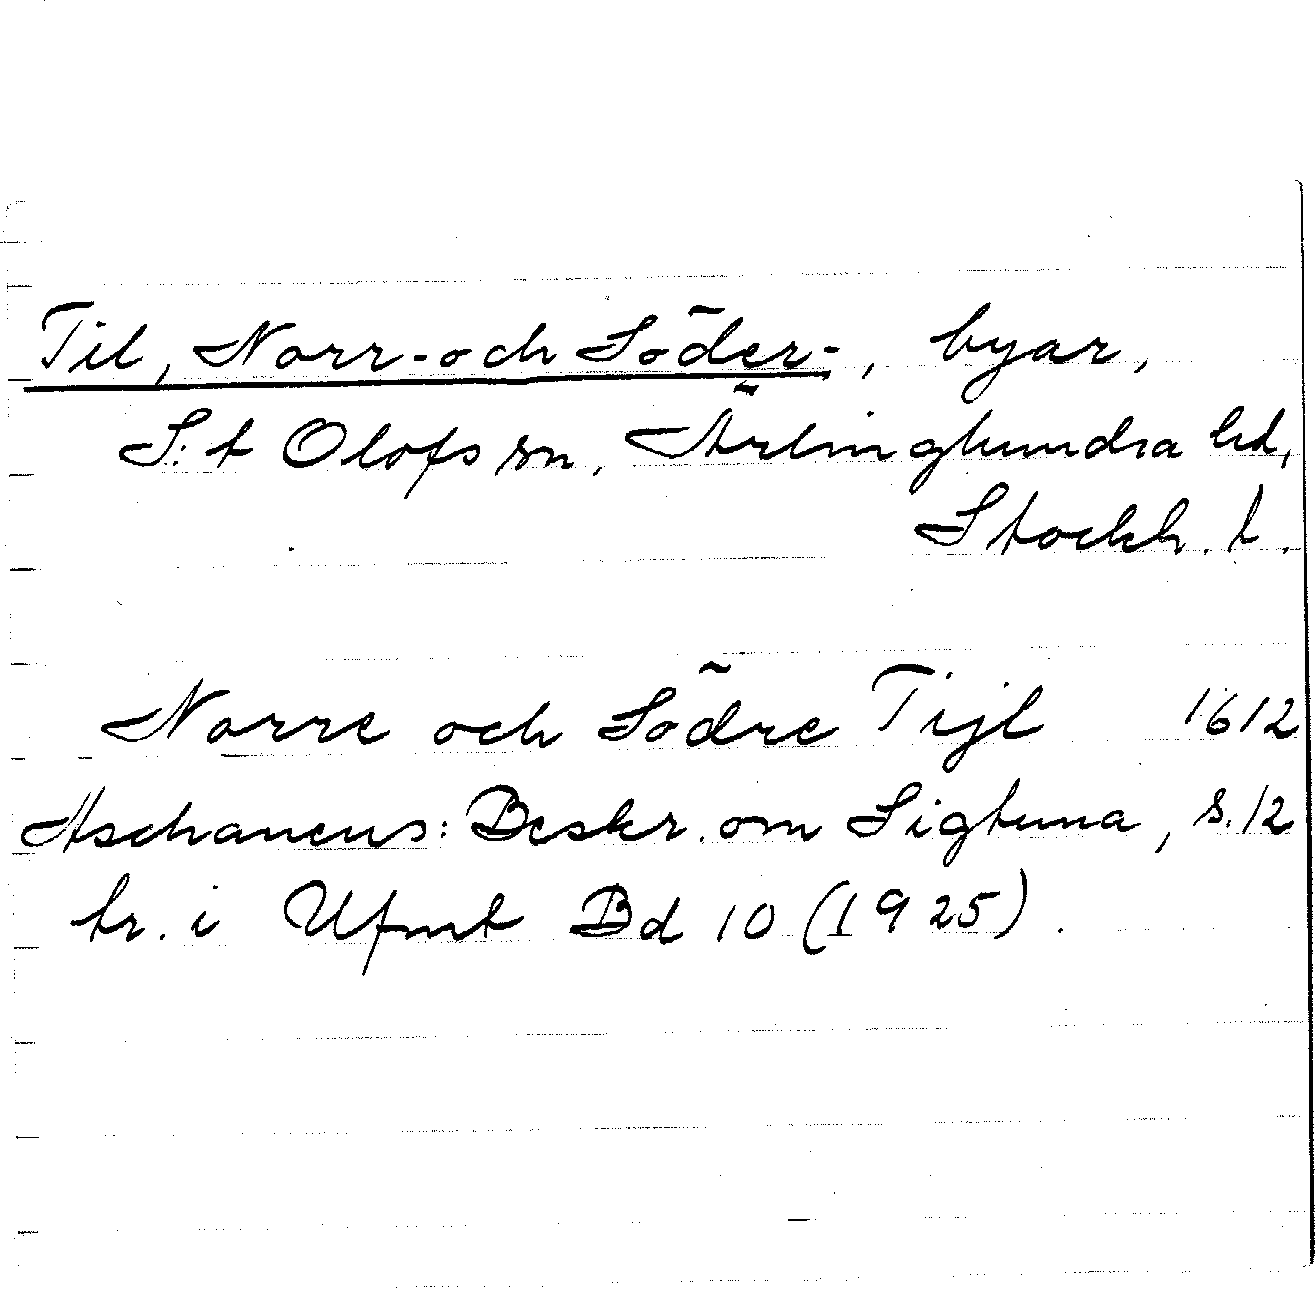 Til, Norr- och Söder-, byar,
S:t Olofs sn, Ärlinghundra hd,
Stockh. l.
Norre och Södre Tijl 1612
Aschaneus: Beskr. om Sigtuna, s. 12
tr. i Ufmt Bd 10 (1925).